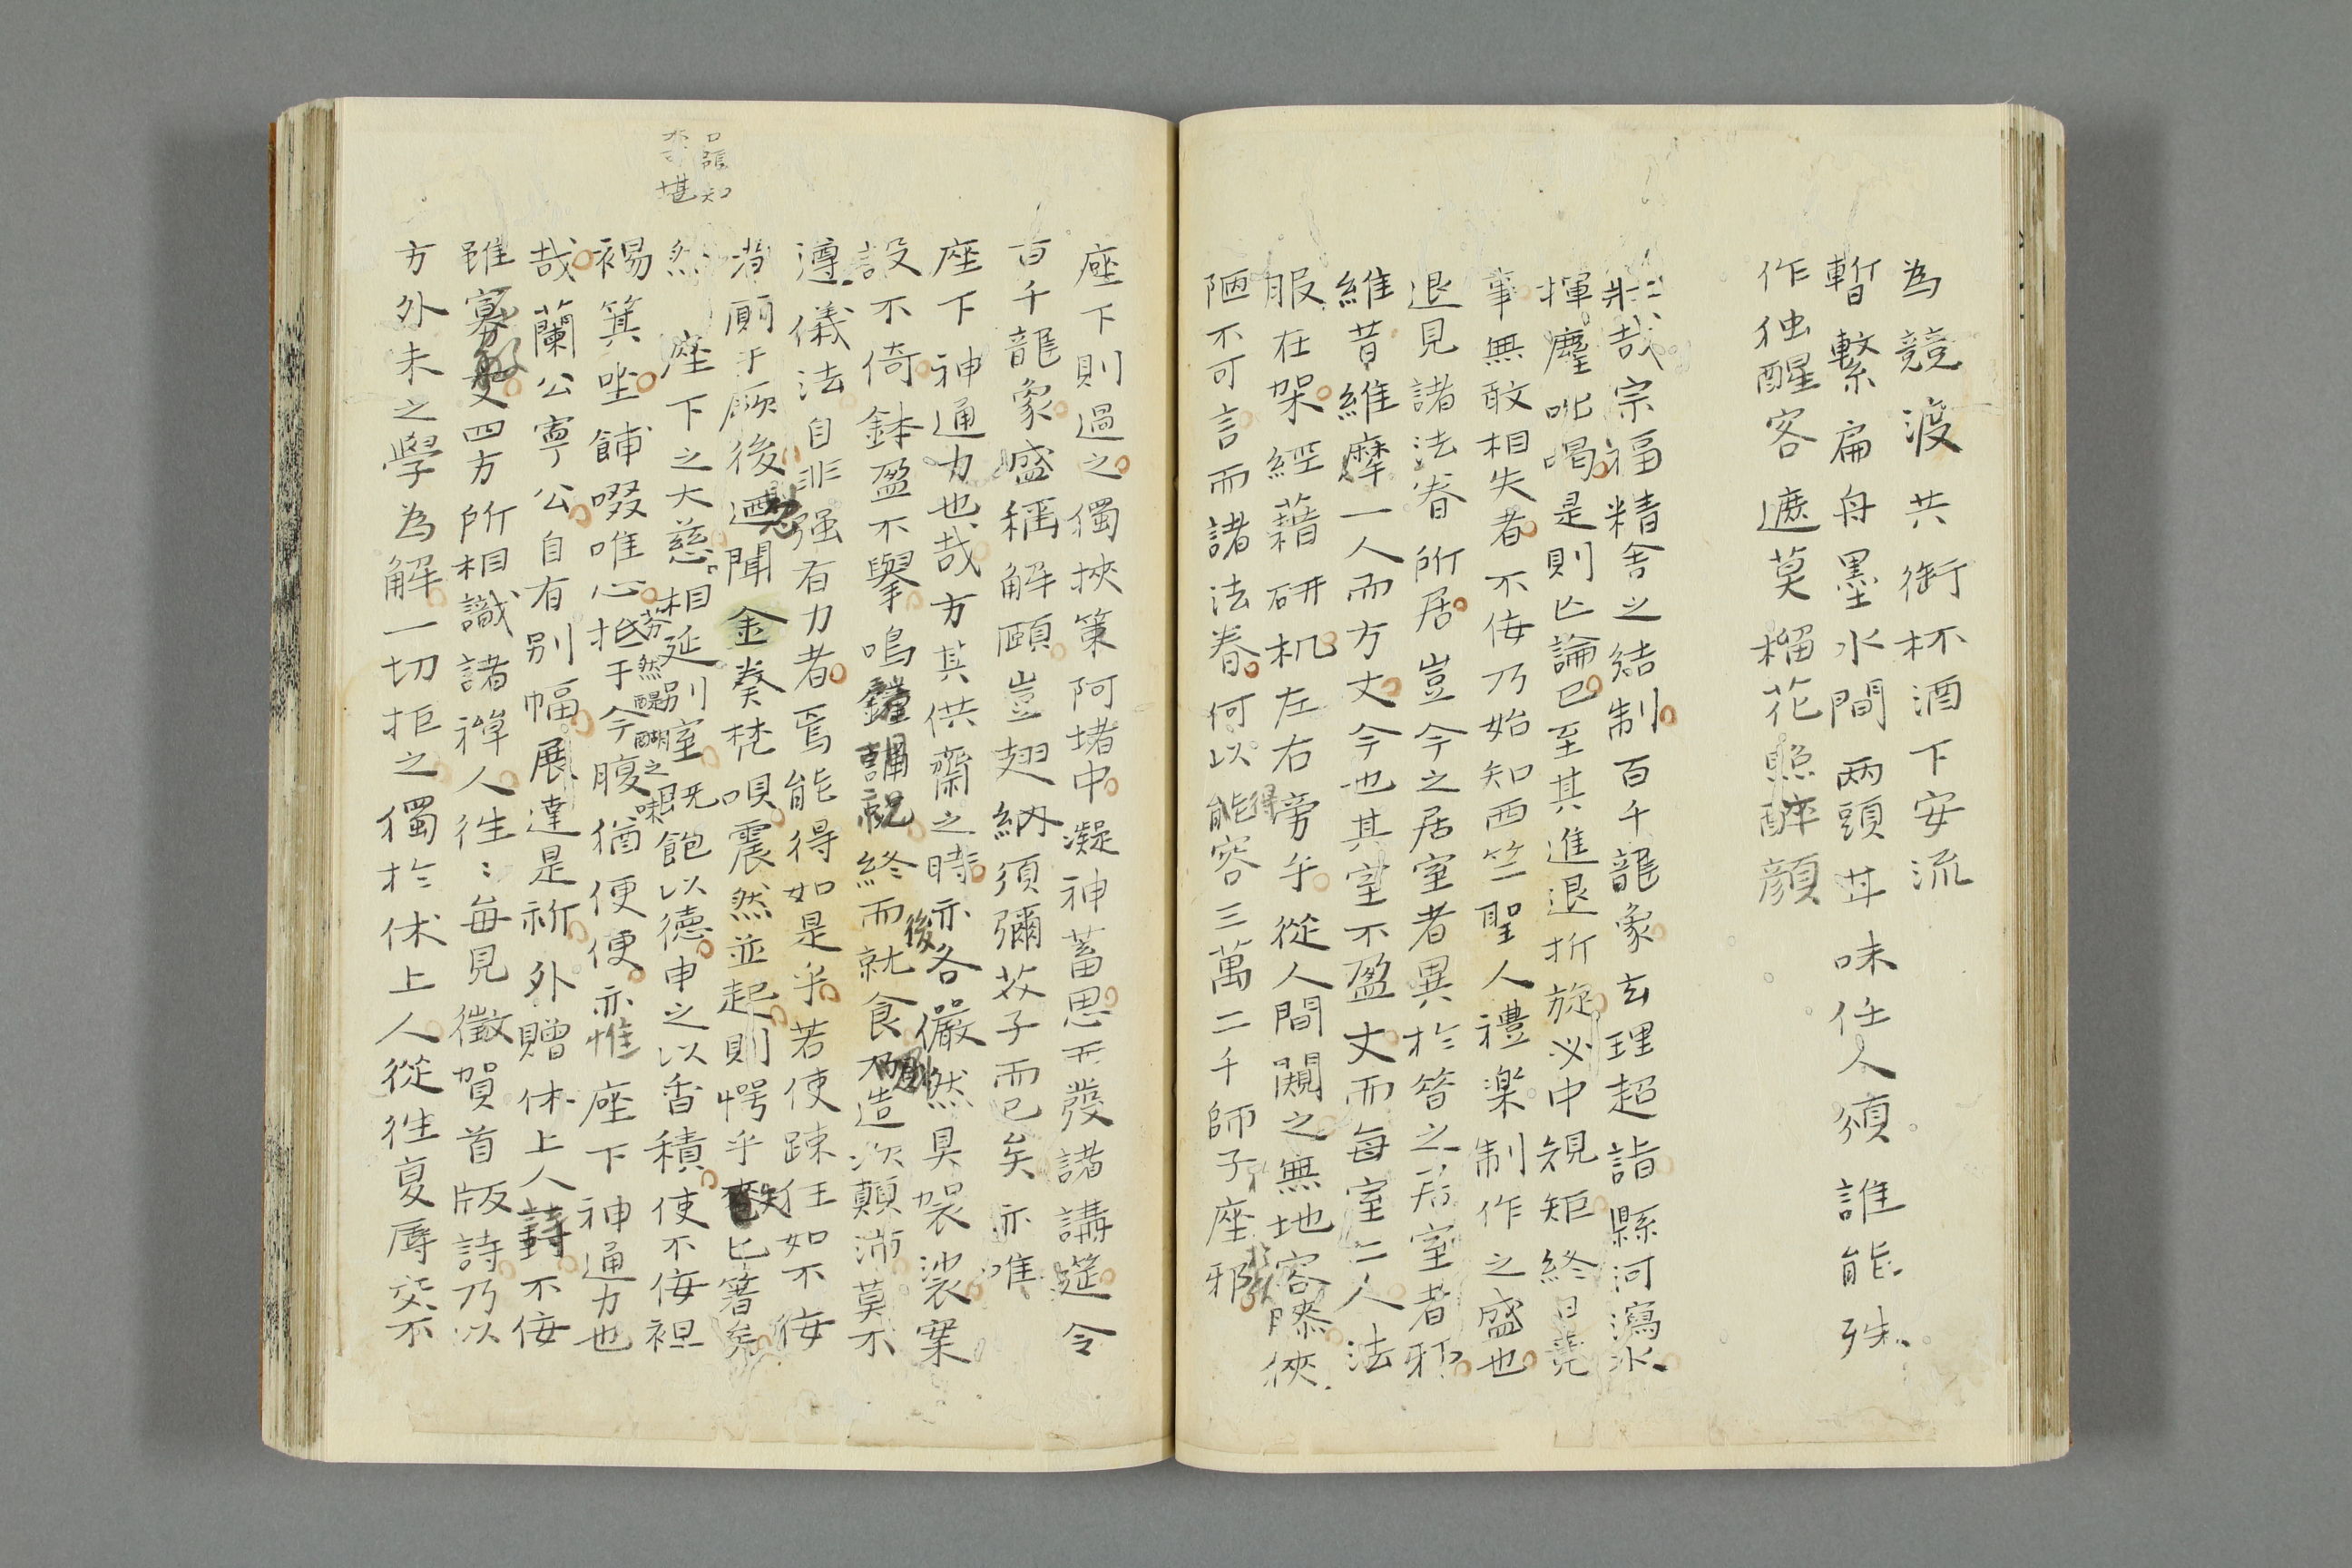 為競渡共銜杯酒下安流
暫繋扁舟墨水間両頭甘味任人須誰能殊
作独醒客遮莫榴花照酔顔
壯哉宗福精舎之結制百千龍象玄理超詣縣河瀉水
揮麈叱喝是則亡論已至其進退折旋必中規矩終日堯
事無敢相失者不佞乃始知西竺聖人禮楽制作之盛也
退見諸法眷所居豈今之居室者異於昝之居室者邪
維昔維摩一人而方丈今也其室不盈丈而每室二人法
服在架經藉研机左右旁乎從人間闚之無地容膝俠
陋不可言而諸法眷何以能得容三萬二千師子座邪
座下則過之獨挾策阿堵中凝神蓄思而發諸講筵令
百千龍象盛稱解頤豈翅納須彌芥子而已矣亦唯
座下神通力也哉方其供齋之時亦各儼然具袈裟案
設不倚鉢盈不擧鳴鐘誦祝終而後就食造次顛沛莫不
遵儀法自非强有力者焉能得如是乎若使踈狂如不佞
厠于厥後遡聞金奏梵唄震然並起則愕乎失匕箸矣
然座下之大慈相延別室既飽以德申之以香積使不佞袒
芬然醍醐之味
裼箕坐餔啜唯心抵于今腹猶便便亦惟座下神通力也
哉蘭公寧公自有别幅展達是祈外贈休上人詩不佞
雖寡交四方所相識諸禅人徃〻每見徴賀首版詩乃以
方外未之學為解一切拒之獨於休上人從徃夏辱交不